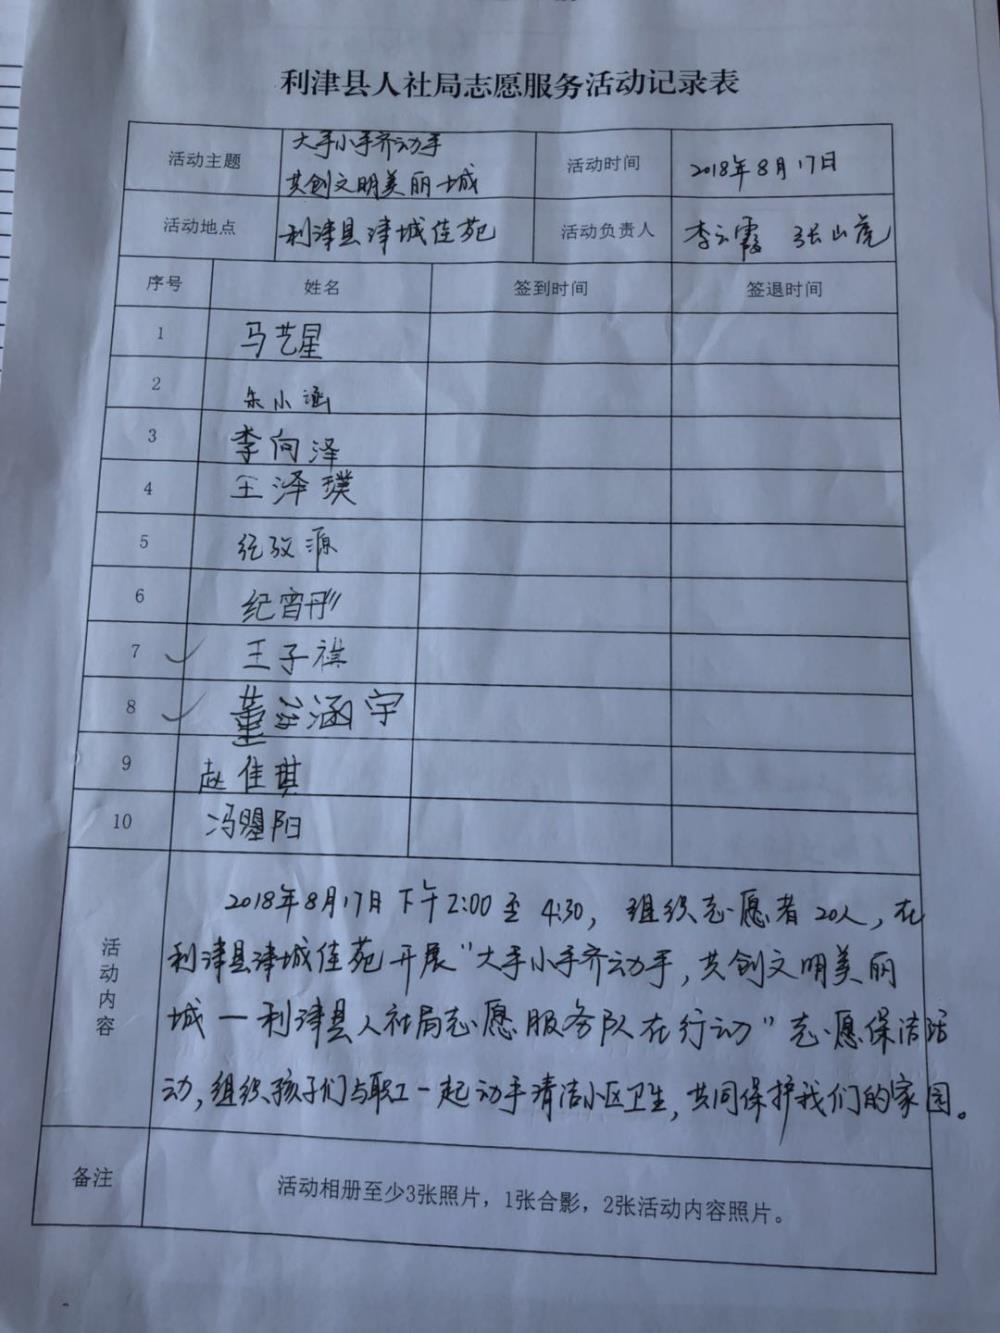 利津县人社局志愿服务活动记录表
活动主题
大手小手齐动手
共创文明美丽城
活动时间
2018年8月17日
活动地点
利津县津城佳苑
活动负责人
李云霞 张山虎
序号 姓名 签到时间 签退时间
1 马艺星
2 朱小涵
3 李向泽
4 王泽璞
5 纪政源
6 纪宵彤
7 王子祺
8 董涵宇
9 赵佳琪
10 冯曌阳
活动内容
2018年8月17日下午2:00至4:30，组织志愿者20人，在
利津县津城佳苑开展“大手小手齐动手，共创文明美丽
城一利津县人社局志愿服务队在行动”志愿保洁活
动，组织孩子们与职工一起动手清洁小区卫生，共同保护我们的家园。
备注
活动相册至少3张照片，1张合影，2张活动内容照片。